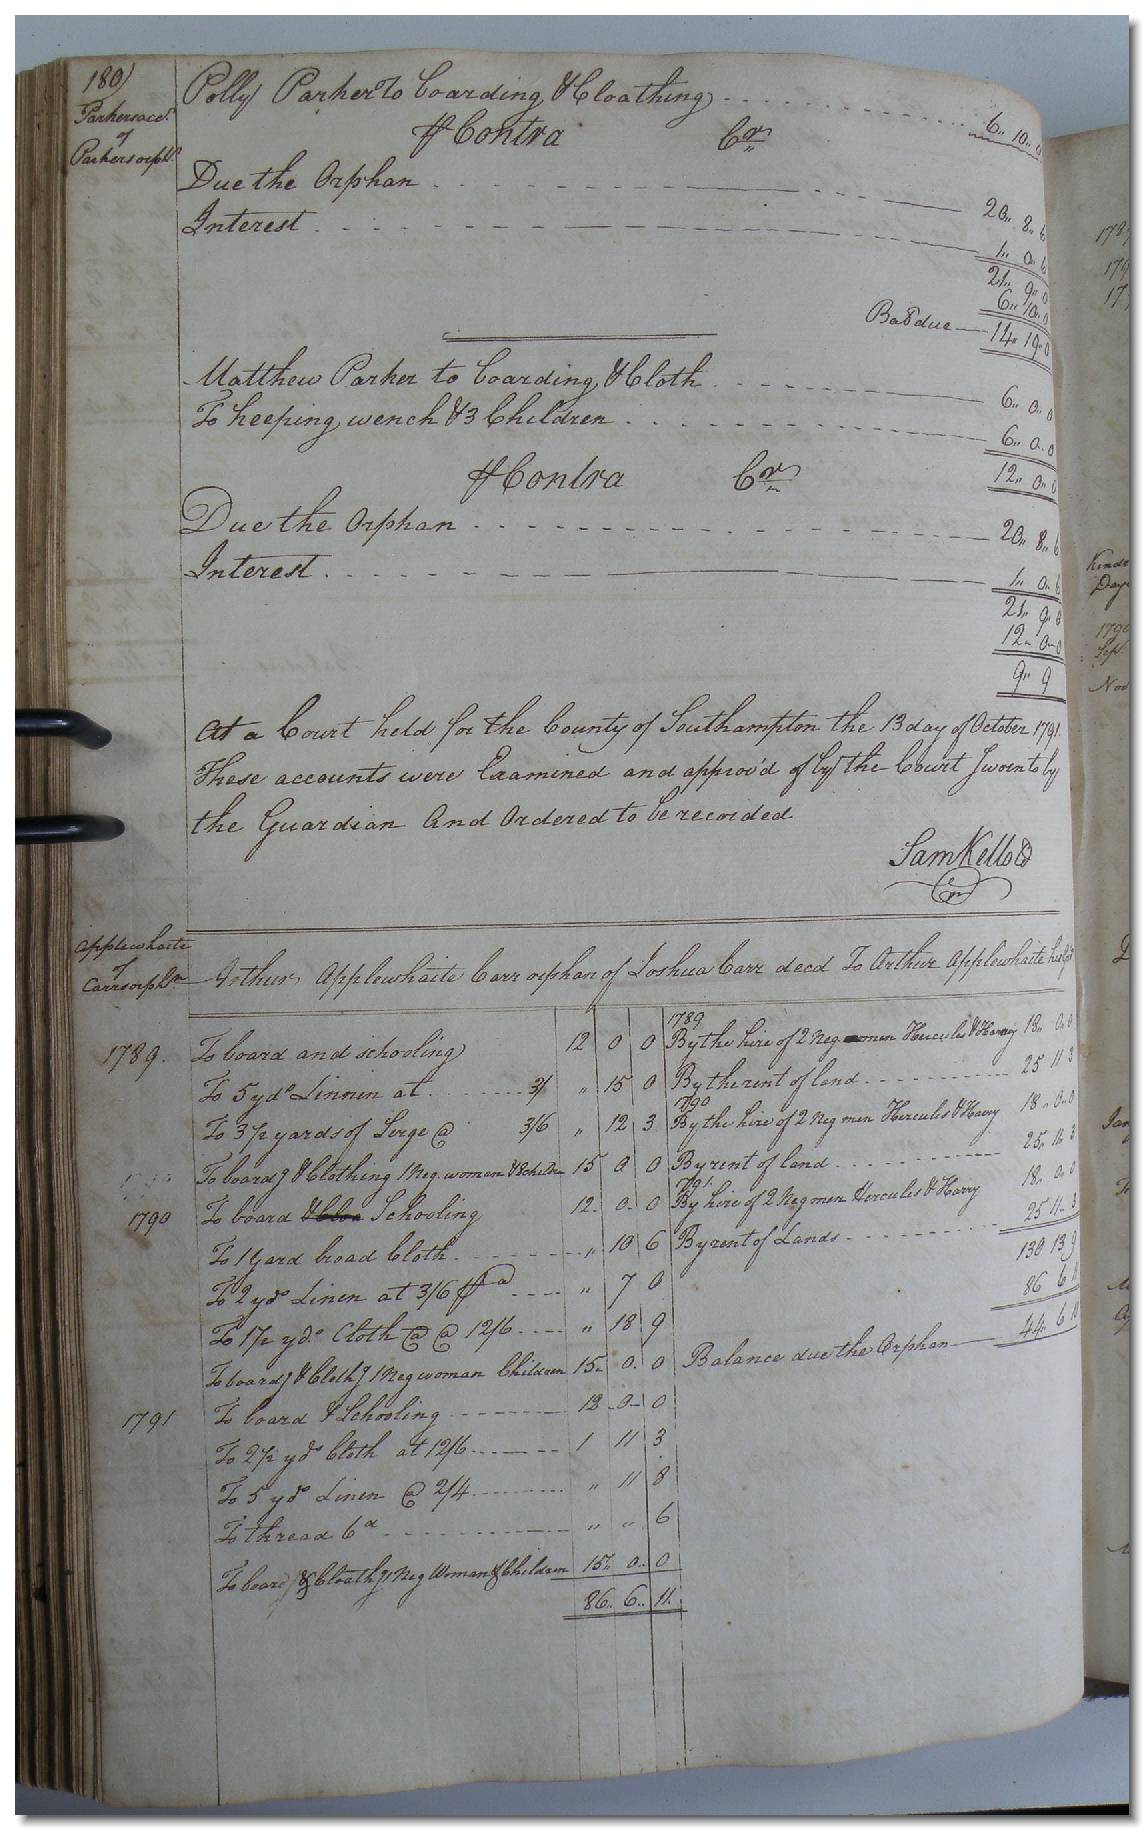 180)
Parkers acct.
of
Parkers orphs.
Polly Parker To boarding & Cloathing 6,, 10,, 0
⅌ Contra Cr.
Due the Orphan 20,, 8,, 6
Interest 1,, 0,, 6
21,, 9,, 0
6,, 10,, 0
Bal due 14,, 19,, 0
Matthew Parker to boarding & Cloth 6,, 0,, 0
To keeping wench & 3 Children 6,, 0,, 0
12,, 0,, 0
⅌ Contra Cr.
Due the Orphan 20,, 8,, 6
Interest 1,, 0,, 6
21,, 9,, 0
12,, 0,, 0
9,, 9
At a Court held for the County of Southampton the 13 day of October 1791.
These accounts were Examined and approv'd of by the Court Sworn to by
the Guardian And Ordered to be recorded
Sam Kello
Applewhaite
of
Carrs orphn.
Arthur Applewhaite Carr orphan of Joshua Carr decd To Arthur Applewhaite his
1789. To board and schooling 12 0 0
To 5 yds Linnen at 3/ ,, 15 0
To 3 1/2 yards of Serge @ 3/6 ,, 12 3
To boardg & Clothing 1 Neg. woman & Childn 15 0 0
1790 To board & Cloa Schooling 12. 0. 0
To 1 Yard broad Cloth ,, 10 6
To 2 yds Linen at 3/6 ,, 7 0
To 1 1/2 yds Cloth @ @ 12/6 ,, 18 9
To boardg & Clothg 1 Neg woman Children 15. 0. 0
1791 To board & Schooling 12 0 0
To 2 1/2 yds Cloth at 12/6 1 11 3
To 5 yds Linen @ 2/4 ,, 11 8
To thread 6d ,, ,, 6
To board & Cloathg 1 Neg Woman & Children 15. 0. 0
86. 6. 11.
1789
By the hire of 2 Neg men Hercules & Harry 18. 0. 0
By the rent of land 25 11 3
1790
By the hire of 2 Neg men Hercules & Harry 18. 0. 0
By rent of land 25. 11. 3
1791
By hire of 2 Neg men Hercules & Harry 18. 0. 0
By rent of Lands 25 11. 3
130 13 9
86 6 11
Balance due the Orphan 44. 6 10